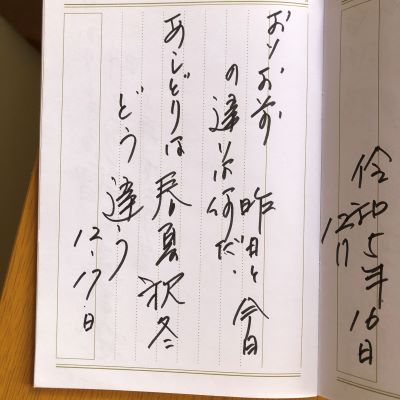 令和5年 16日
12月
おいお前 昨日と今日
の違いは何だ.
あしどりは 春夏秋冬
どう違う
12.17.日